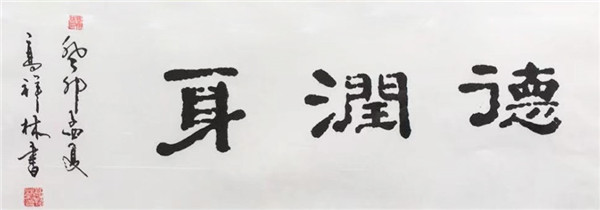 德潤身
癸卯孟夏
高祥林書